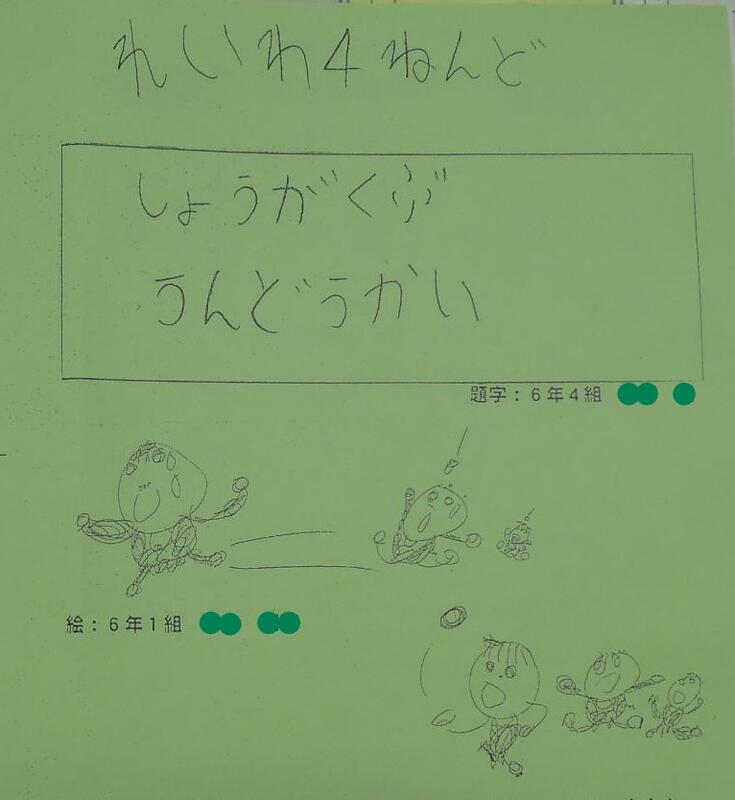 れいわ4ねんど
しょうがくぶ
うんどうかい
題字：6年4組
絵：6年1組